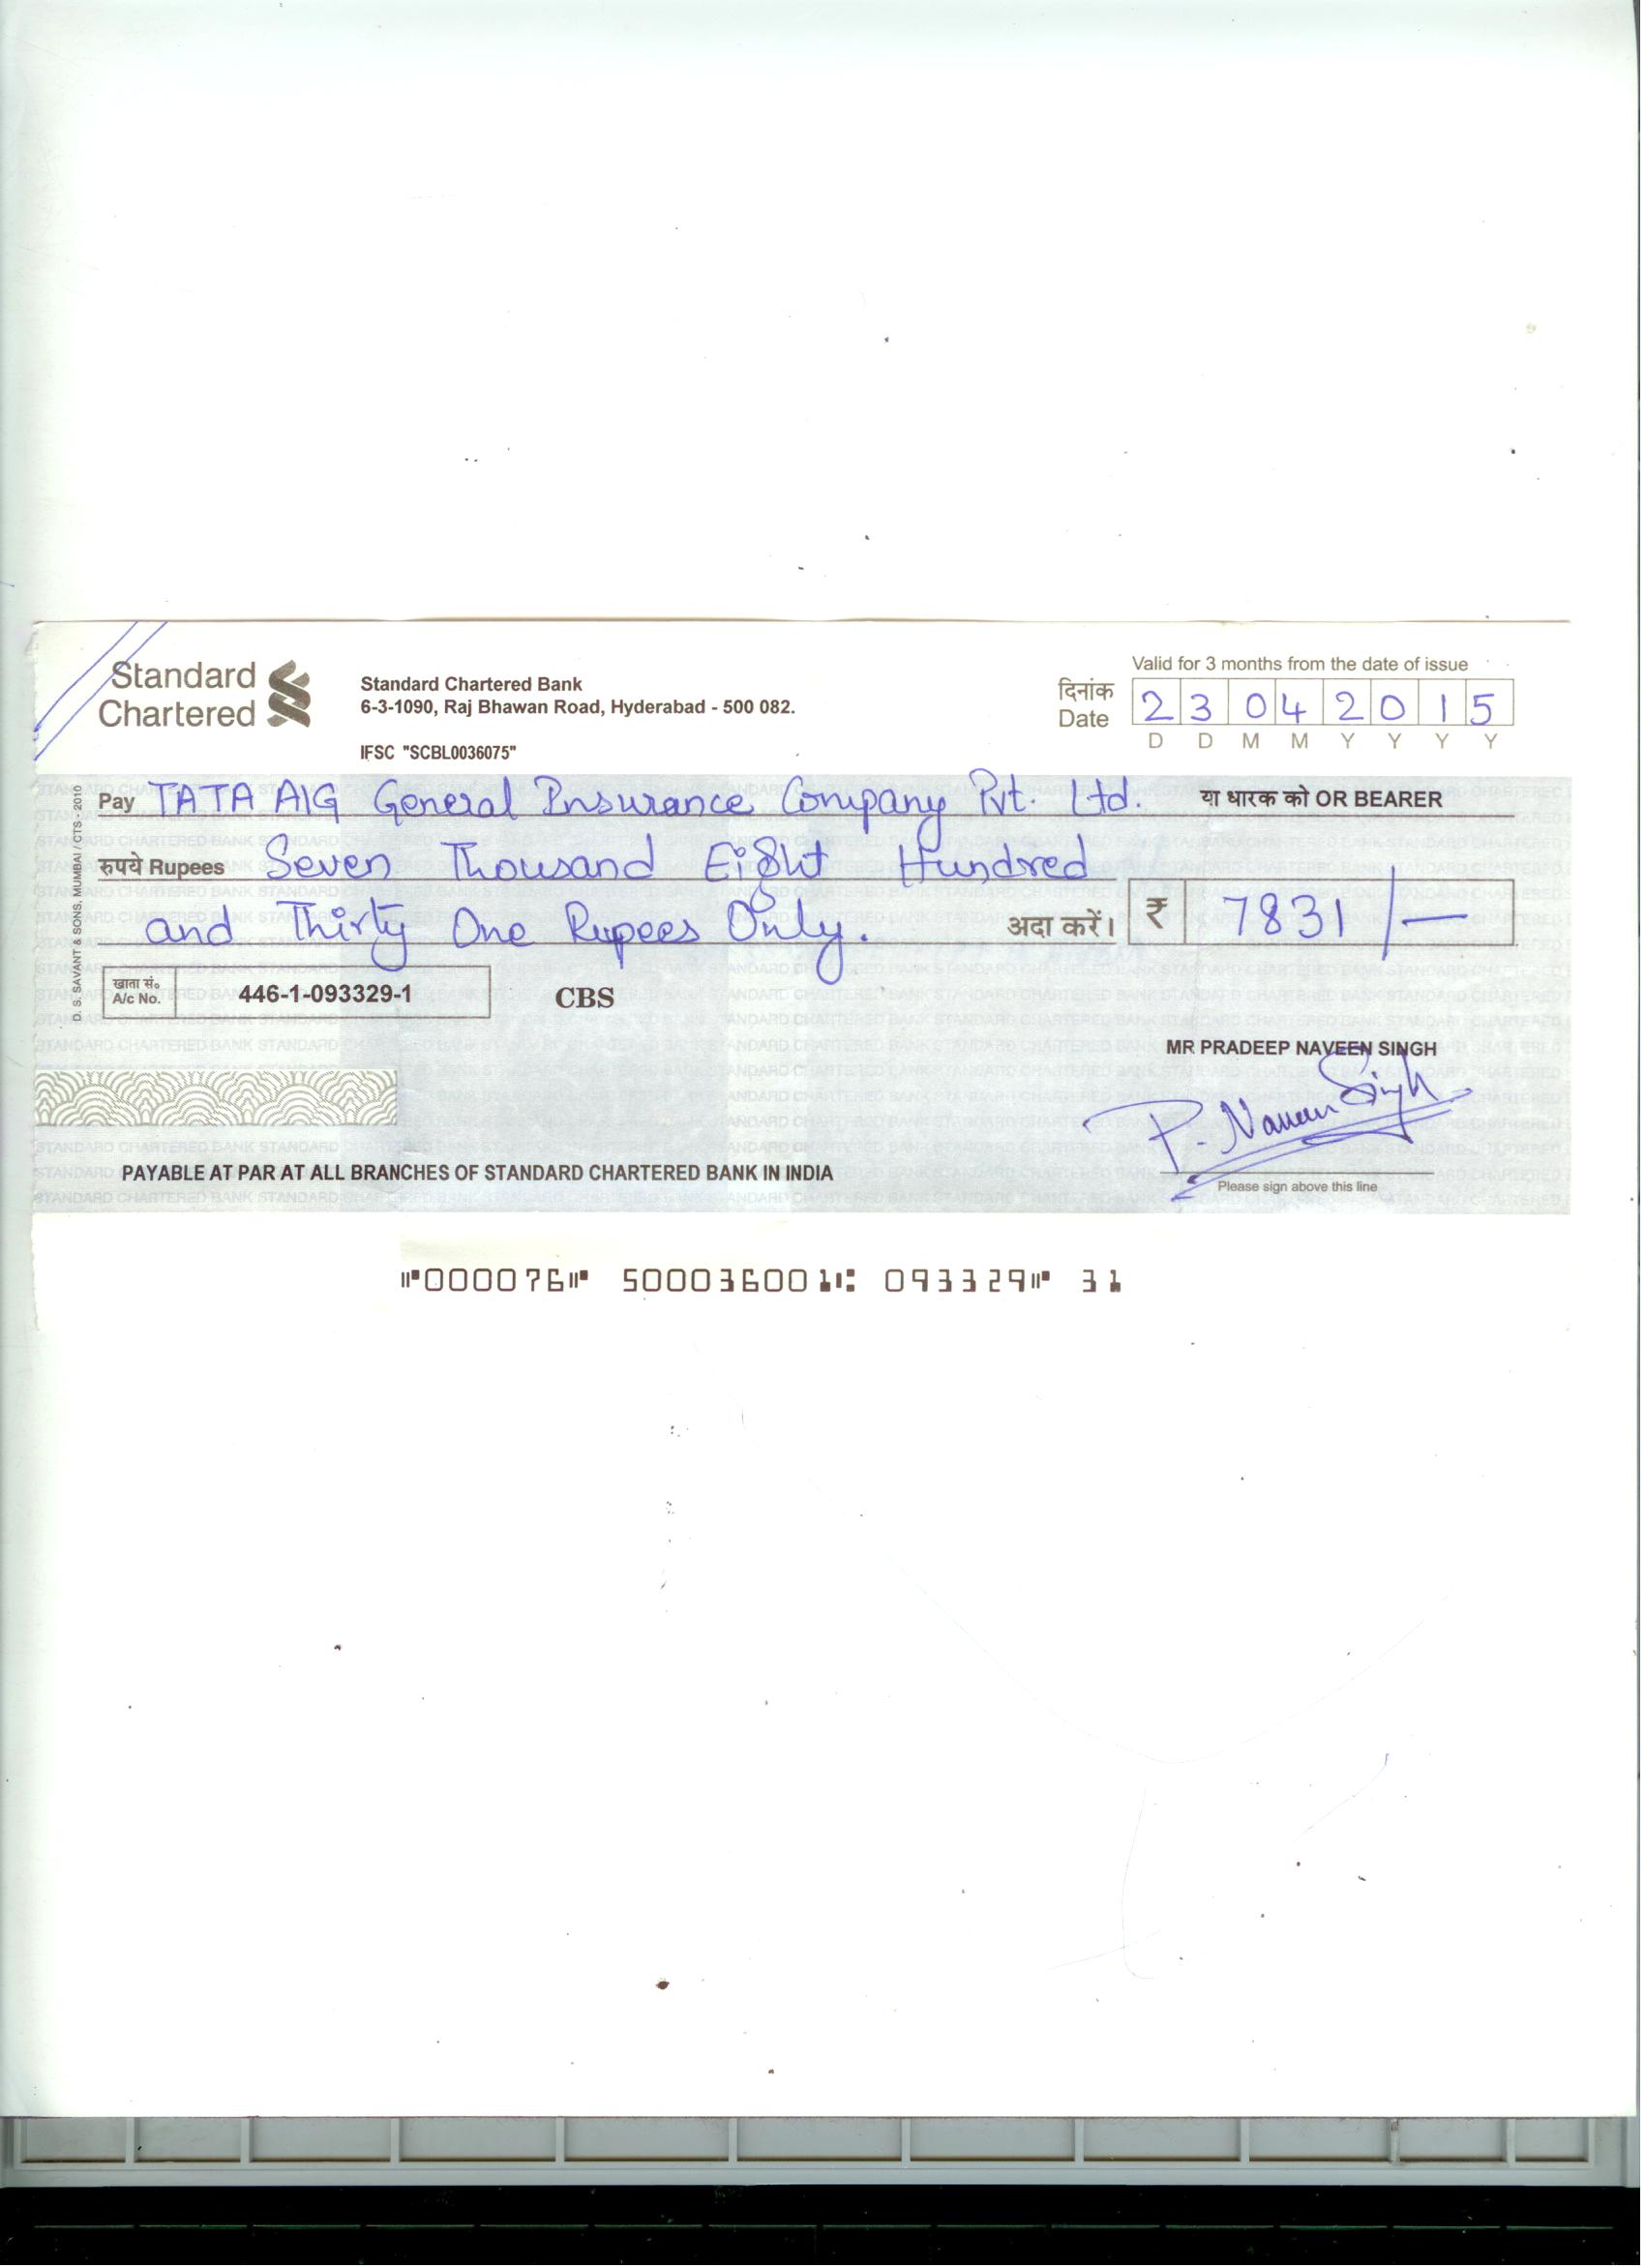 Standard
Chartered
Standard Chartered Bank
6-3-1090, Raj Bhawan Road, Hyderabad - 500 082.
IFSC "SCBL0036075"
Valid for 3 months from the date of issue
दिनांक
Date
2 3 0 4 2 0 1 5
D D M M Y Y Y Y
Pay TATA AIG General Insurance Company Pvt. Ltd. या धारक को OR BEARER
रुपये Rupees Seven Thousand Eight Hundred
and Thirty One Rupees Only. अदा करें। ₹ 7831/-
खाता सं०
A/c No. 446-1-093329-1 CBS
MR PRADEEP NAVEEN SINGH
P. Naveen Singh
Please sign above this line
PAYABLE AT PAR AT ALL BRANCHES OF STANDARD CHARTERED BANK IN INDIA
D. S. SAVANT & SONS, MUMBAI / CTS - 2010
⑈000076⑈ 500036001⑆ 093329⑈ 31